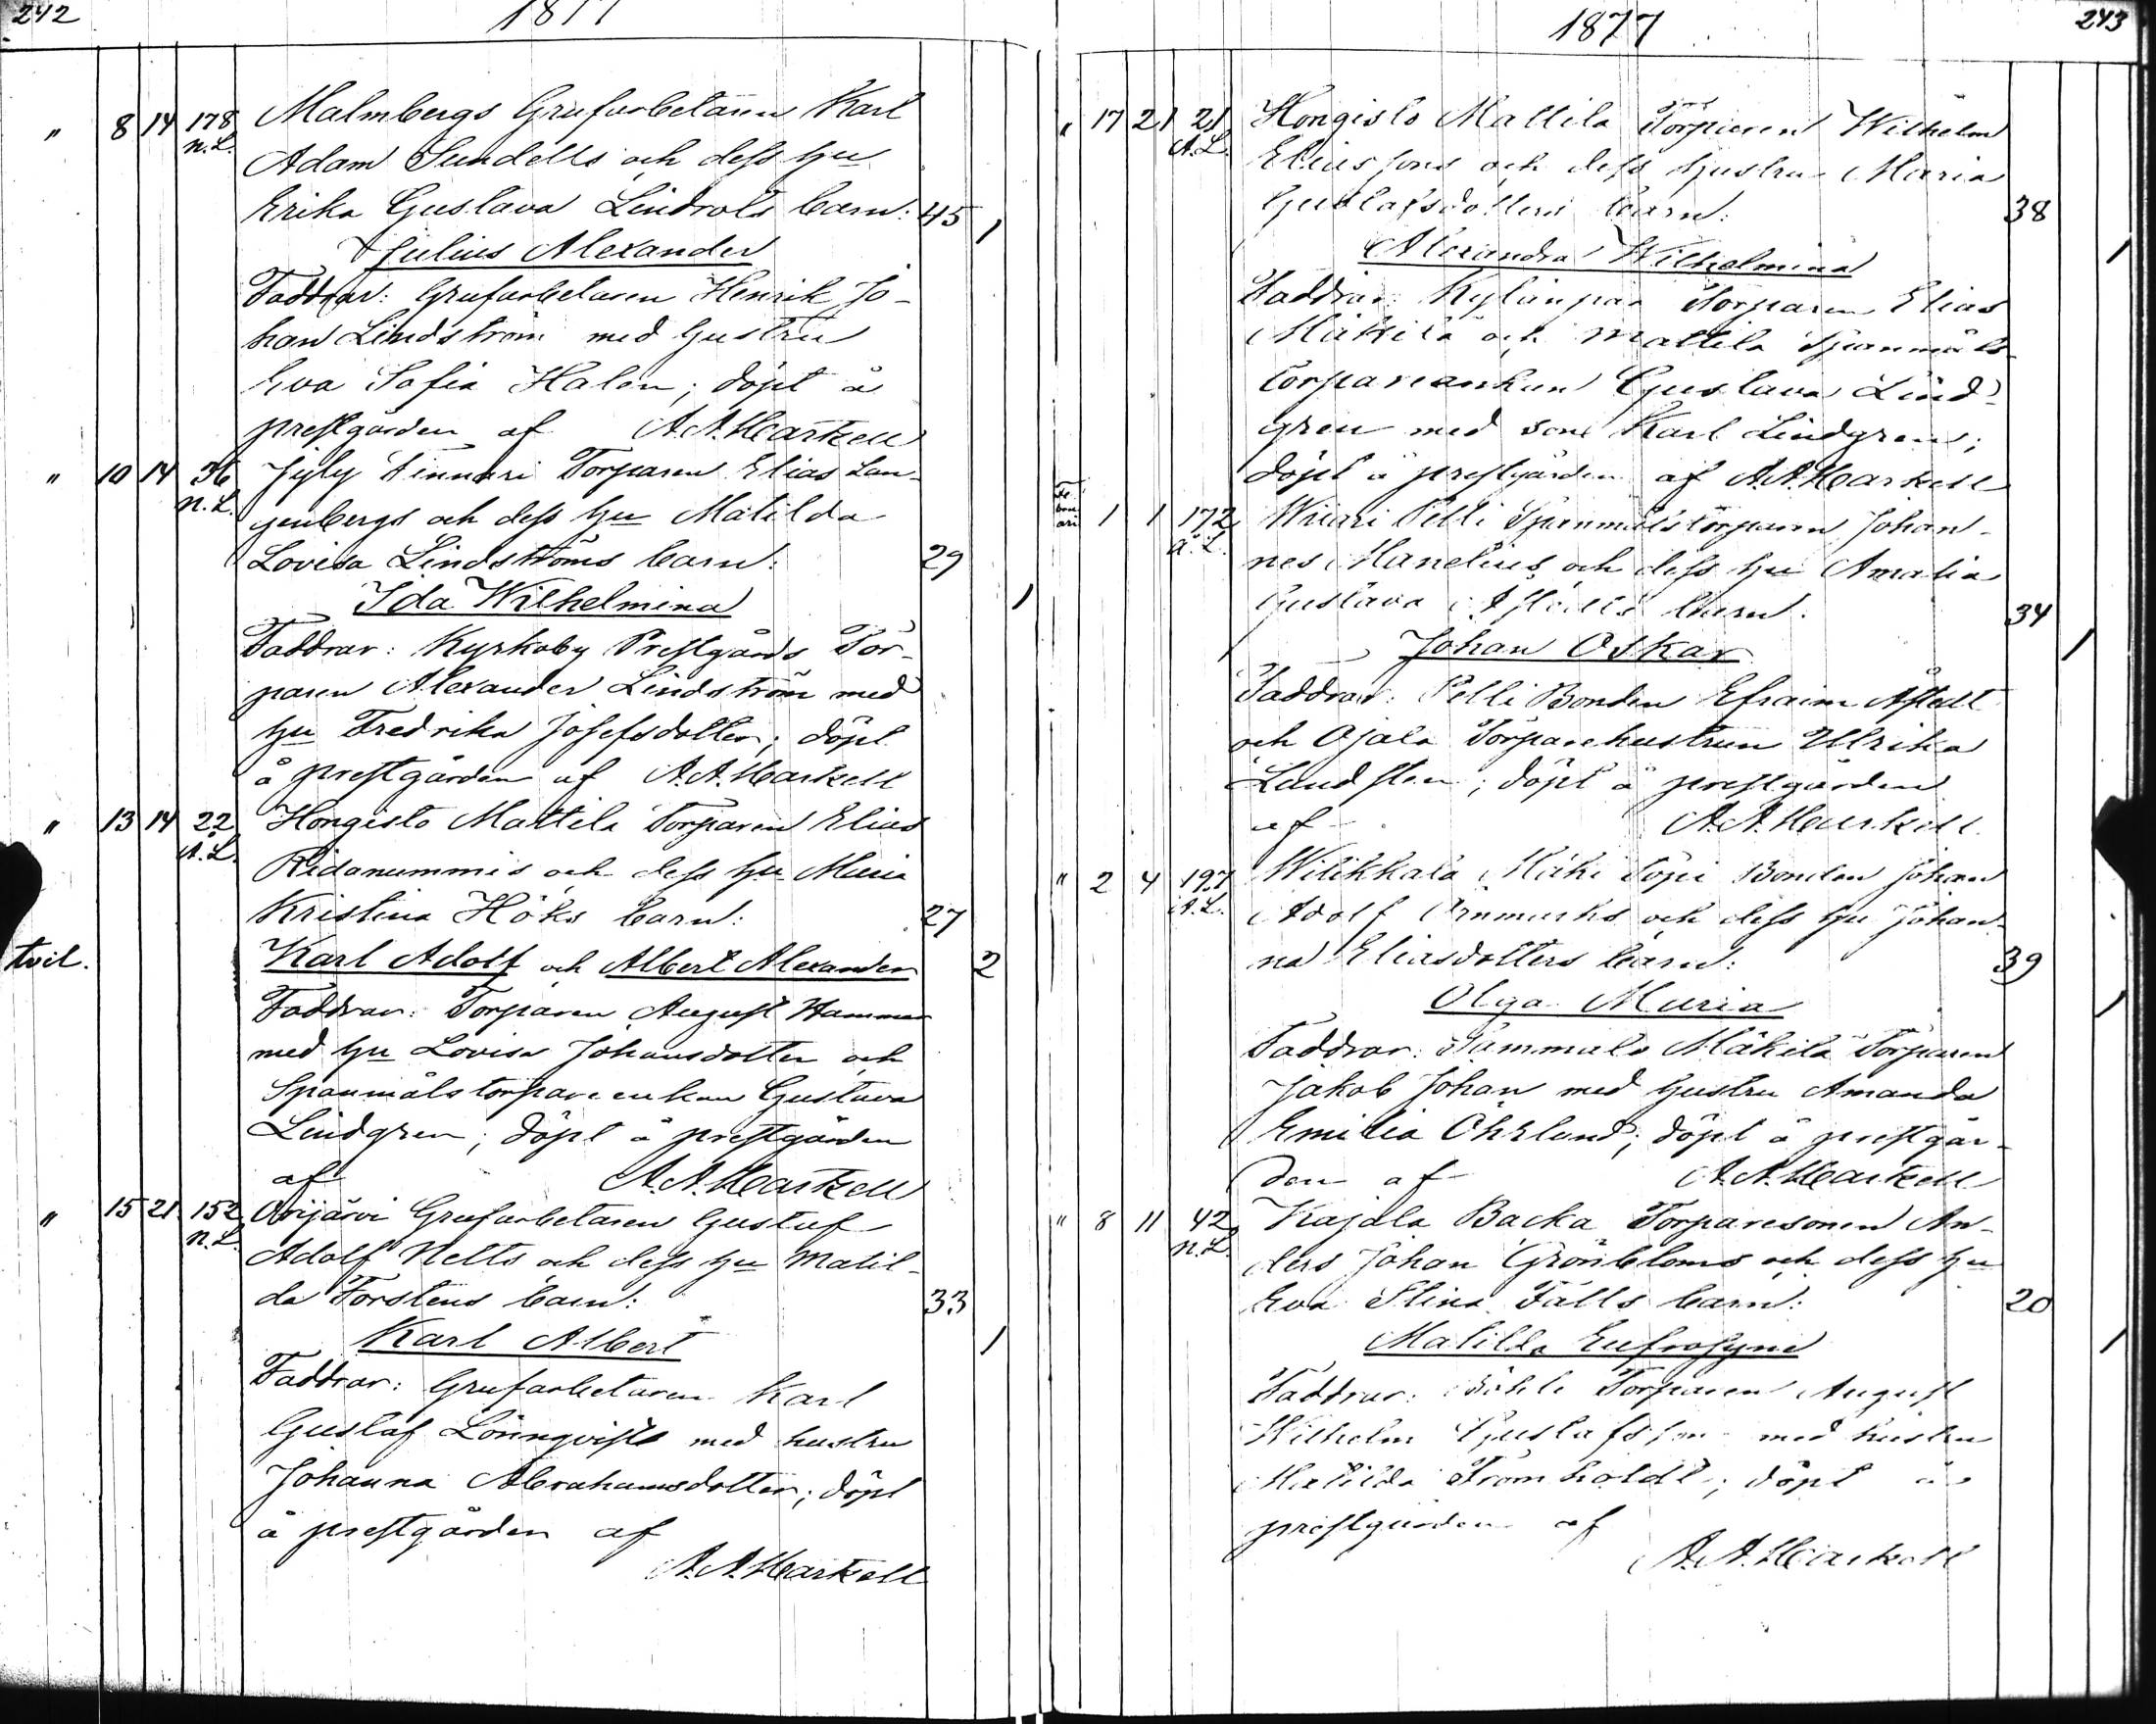 242
1877
" 8 14 178 Malmbergs Grufarbetaren Karl
n. L.
Adam Sundells och dess hu
Erika Gustava Lindrots barn: 45
Julius Alexander 1
Faddrar: Grufarbetaren Henrik Jo-
han Lindström med hustru
Eva Sofia Halen; döpt å
prestgården af A. A. Markell
" 10 14 36 Jyly Finnari Torparen Elias Lan-
n. L.
genbergs och dess hu Matilda
Lovisa Lindströms barn: 29
Ida Wilhelmina 1
Faddrar: Kyrkoby Prestgårds Tor-
paren Alexander Lindström med
hu Fredrika Josefsdotter; döpt
å prestgården af A. A. Markell
" 13 14 22 Hongisto Mattila Torparen Elias
A. L.
Ridanummis och dess hu Maria
Kristina Höks barn: 27
tvil. Karl Adolf och Albert Alexander 2
Faddrar: Torparen August Hammar
med hu Lovisa Johansdotter och
Spanmålstorpareenkan Gustava
Lindgren; döpt å prestgården
af A. A. Markell
" 15 21 152 Orijärvi Grufarbetaren Gustaf
n. L.
Adolf Nelts och dess hu Matil-
da Forstens barn: 33
Karl Albert 1
Faddrar: Grufarbetaren Karl
Gustaf Lönnqvist med hustru
Johanna Abrahamsdotter; döpt
å prestgården af
A. A. Markell
1877
243
" 17 21 21 Hongisto Mattila Torparen Wilhelm
A. L.
Eliassons och dess hustru Maria
Gustafsdotters barn: 38
Alexandra Wilhelmina 1
Faddrar: Kylänpää Torparen Elias
Mäkilä och Mattila Spanmåls
torpareenkan Gustava Lind-
gren med son Karl Lindgren;
döpt å prestgården af A. A. Markell
Febru
ari 1 1 172 Wiiari Pelli Spanmålstorparen Johan-
A. L.
nes Manelius och dess hu Amalia
Gustava barn: 34
Johan Oskar 1
Faddrar: Pelli Bonden Efraim
och Ojala Torparehustrun Ulrika
Landsten; döpt å prestgården
af A. A. Markell
" 2 4 197 Wilikkala Mäki Töpi Bonden Johan
A. L.
Adolf och dess hu Johan-
na Eliasdotters barn: 39
Olga Maria 1
Faddrar: Sammalo Mäkilä Torparen
Jakob Johan med hustru Amanda
Emilia Öhrlund; döpt å prestgår-
den af A. A. Markell
" 8 11 42 Kajala Backa Torparesonen An-
n. L.
ders Johan Grönbloms och dess hu
Eva Stina Fälls barn: 20
Matilda Eufrosyne 1
Faddrar: Torparen August
Wilhelm Gustafsson med hustru
Matilda Tromholdt; döpt å
prestgården af
A. A. Markell